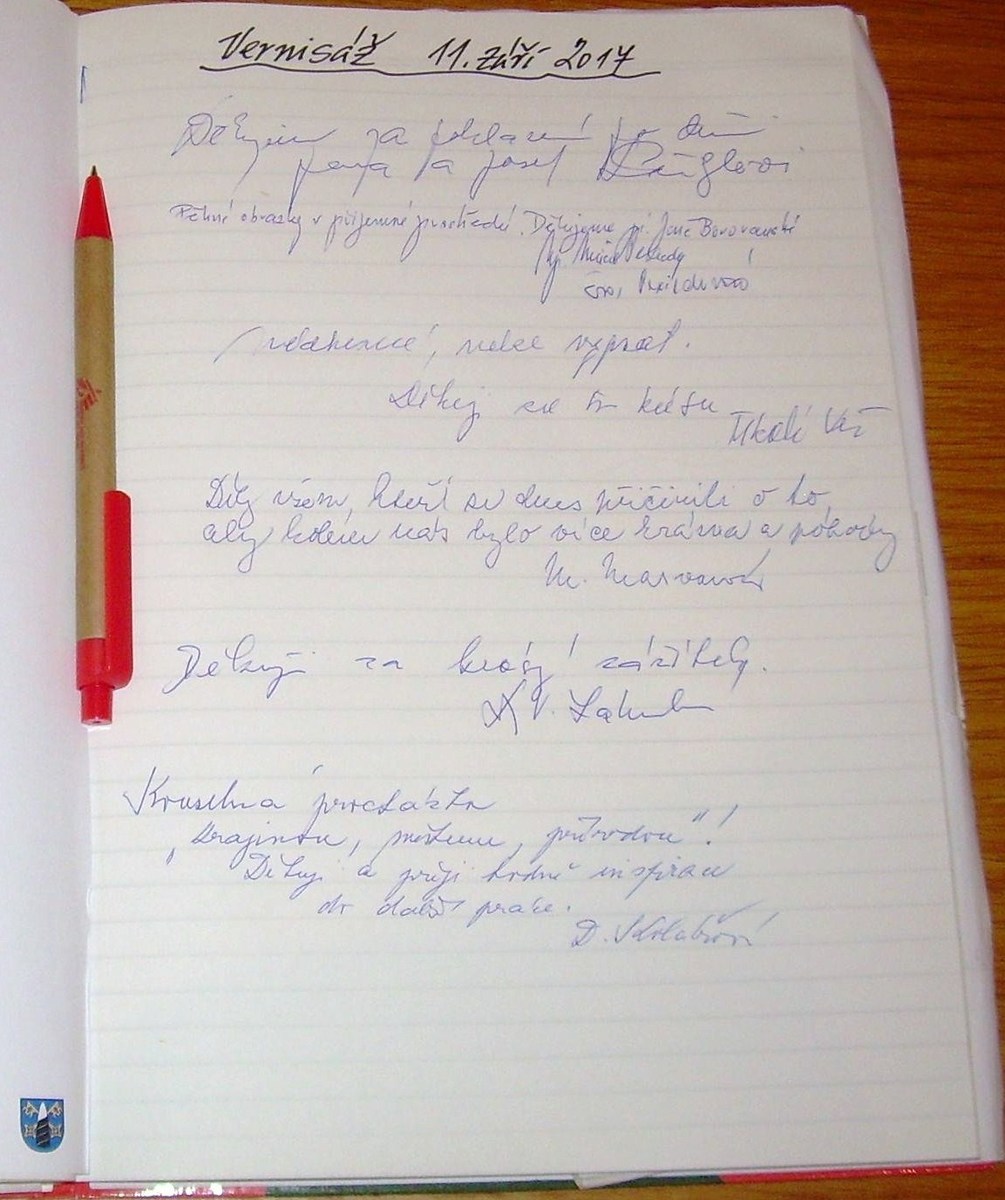 Vernisáž 11. září 2017
Děkujeme za pohlazení po duši
Josef
Pěkné obrázky v příjemné prostředí. Děkujeme pí. Janě Borovanské
nelze vypsat.
Děkuji za tu krásu
Díky všem, kteří se dnes přičinili o to,
aby kolem nás bylo více krásna a pohody
M. Marvanová
Děkuji za krásný zážitek.
V.
Kouzelná procházka
„krajinou, městem, přírodou"!
Děkuji a přeji hodně inspirace
do další práce.
D. Kolářová